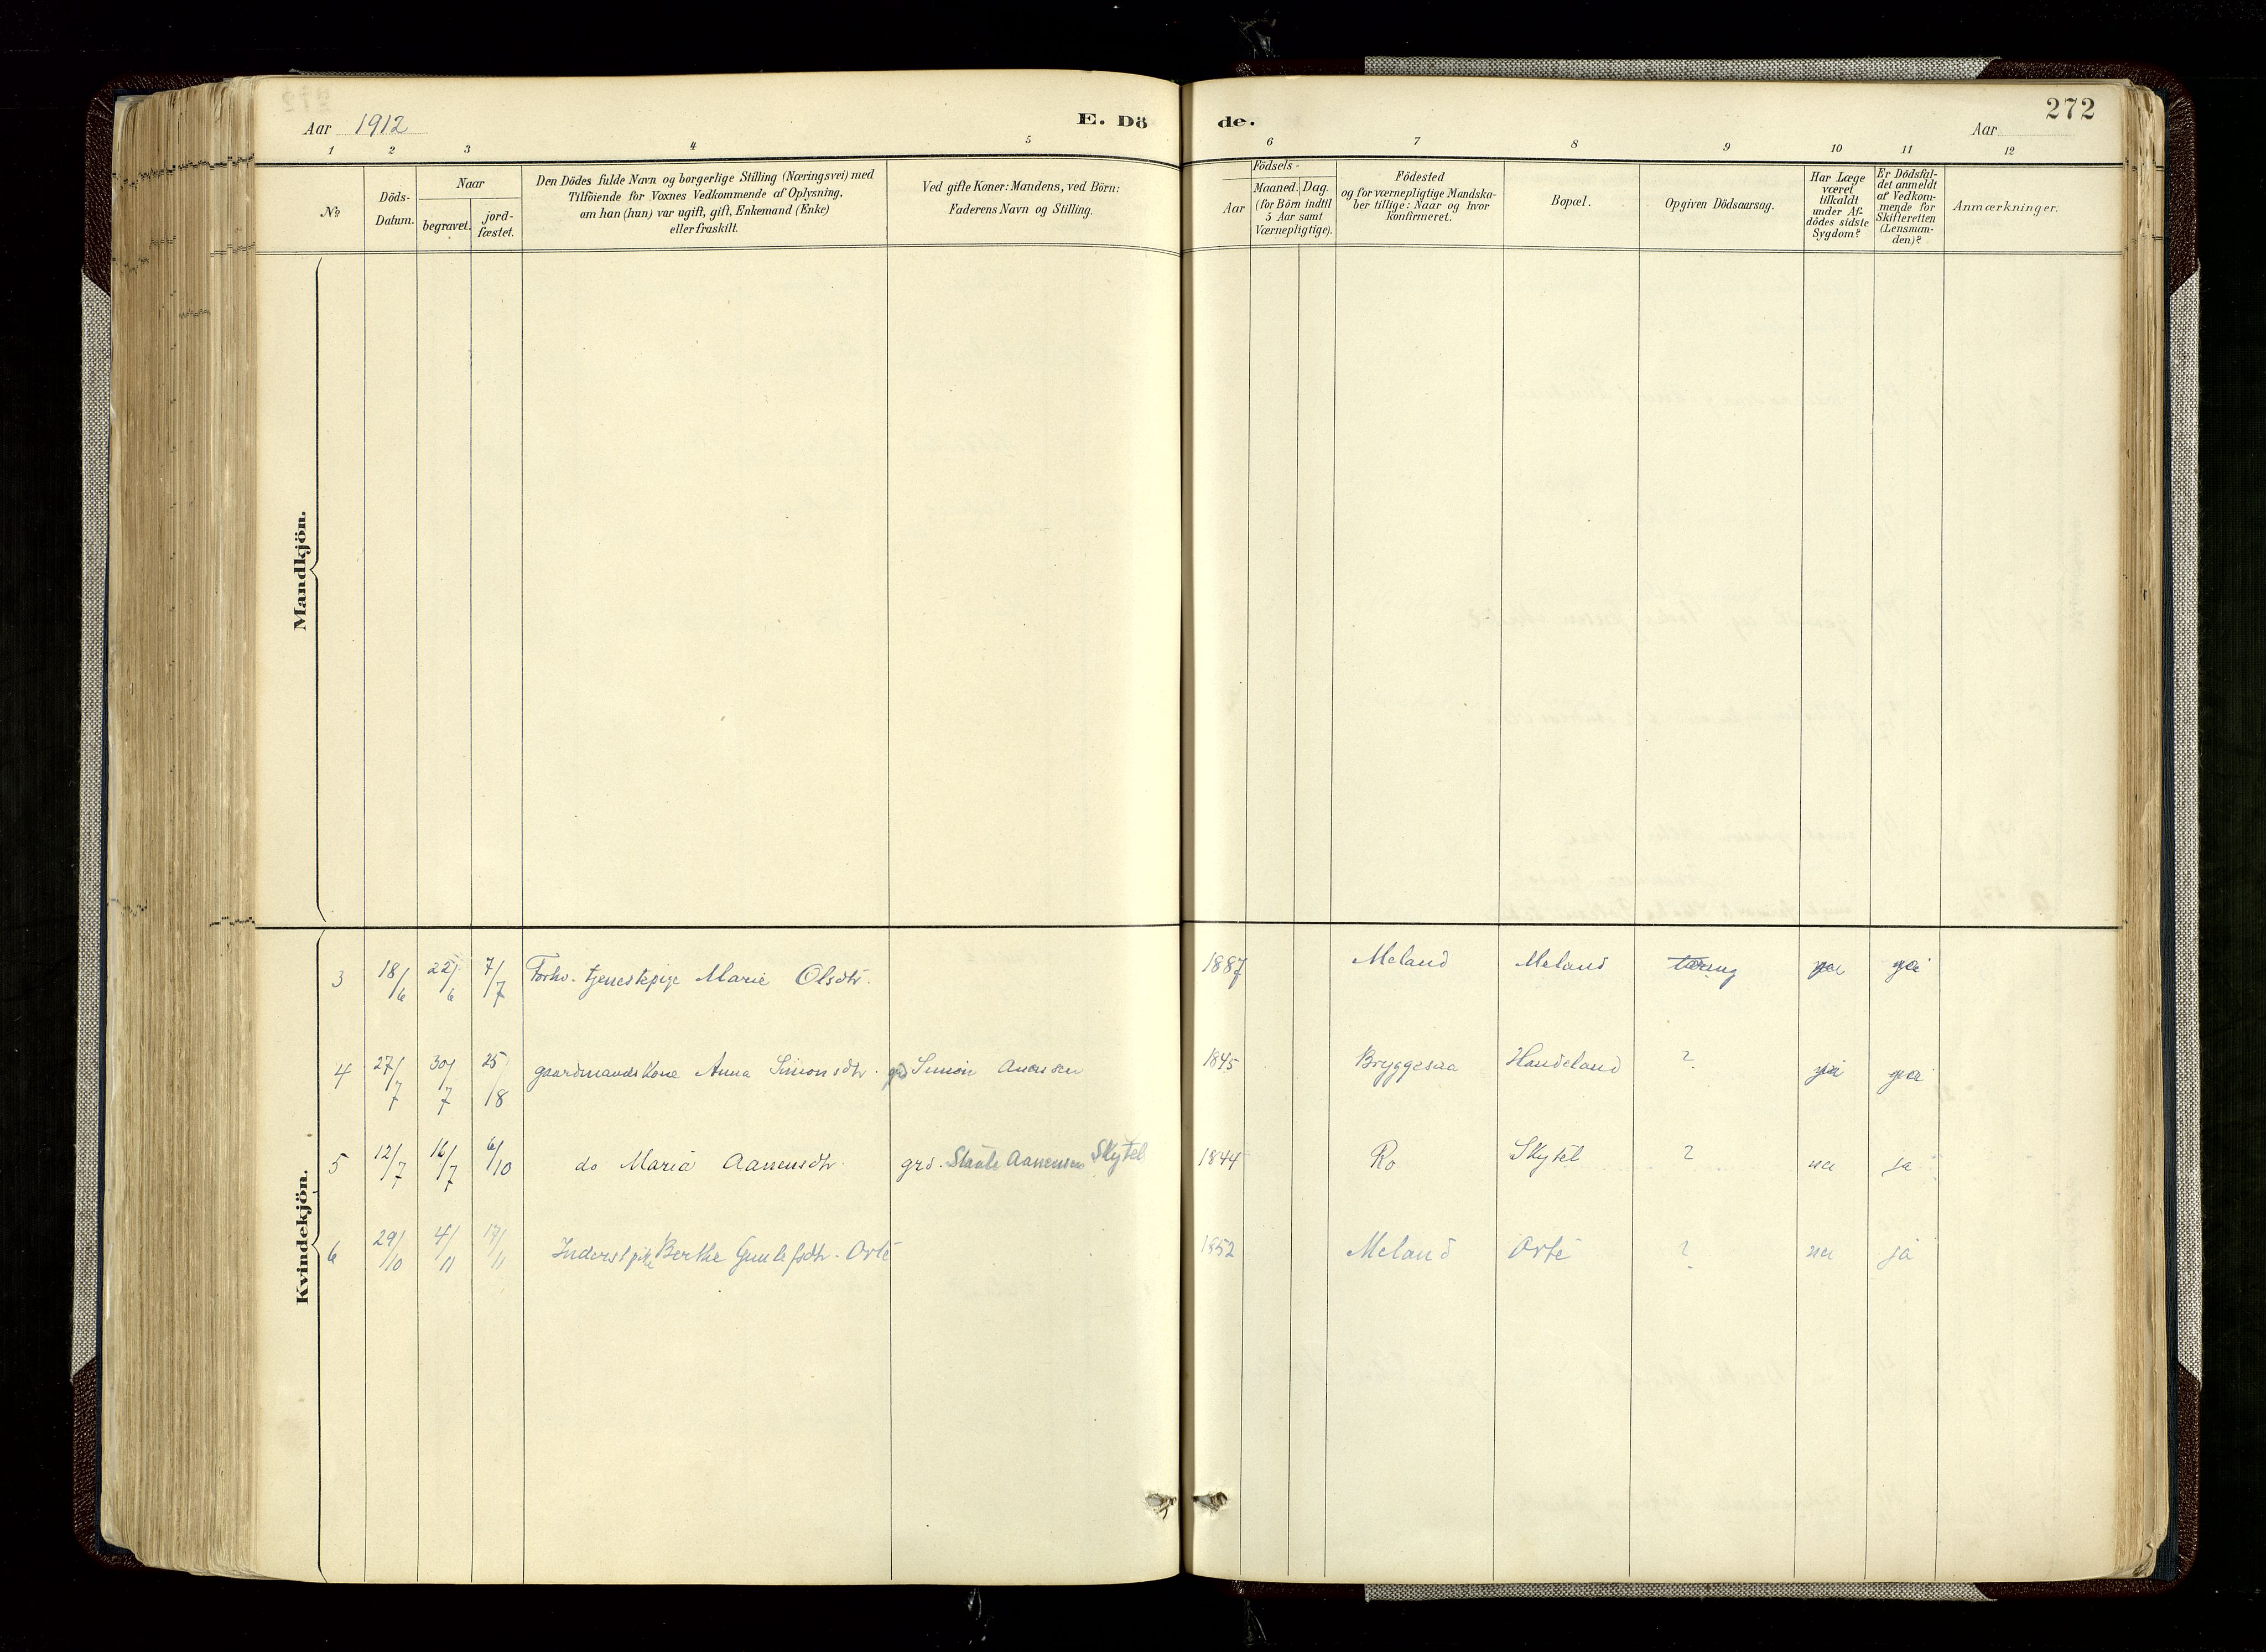 272
Aar 1912
E. Dö de.
Aar
1 2 3 4 5 6 7 8 9 10 11 12
No
Döds-Datum.
Naar
begravet.
jord-fæstet.
Den Dödes fulde Navn og borgerlige Stilling (Næringsvei) med
Tilföiende for Voxnes Vedkommende af Oplysning,
om han (hun) var ugift, gift, Enkemand (Enke)
eller fraskilt.
Ved gifte Koner: Mandens, ved Börn:
Faderens Navn og Stilling.
Födsels-
Aar
Maaned. Dag.
(for Börn indtil
5 Aar samt
Værnepligtige).
Födested
og for værnepligtige Mandska-
ber tillige: Naar og hvor
konfirmeret.
Bopæl.
Opgiven Dödsaarsag.
Har Læge
været
tilkaldt
under Af-
dödes sidste
Sygdom?
Er Dödsfal-
det anmeldt
af Vedkom-
mende for
Skifteretten
(Lensman-
den)?
Anmærkninger.
Mandkjön.
Kvindekjön.
3 18/6 22/6 7/7 Forhv. tjenestepige Marie Olsdtr. 1887 Meland Meland tæring ja ja
4 27/7 30/7 25 18 gaardmandskone Anna Simonsdtr. Simon 1845 Bryggesaa Handeland ? ja ja
5 12/7 16/7 6/10 do Maria Aanensdtr. grd. Staale Aanensen Skytel 1844 Ro Skytel ? nei ja
6 29/10 4/11 17/11 Inderst pike Berthe Gunlefsdtr. Orte 1852 Meland Orte ? nei ja